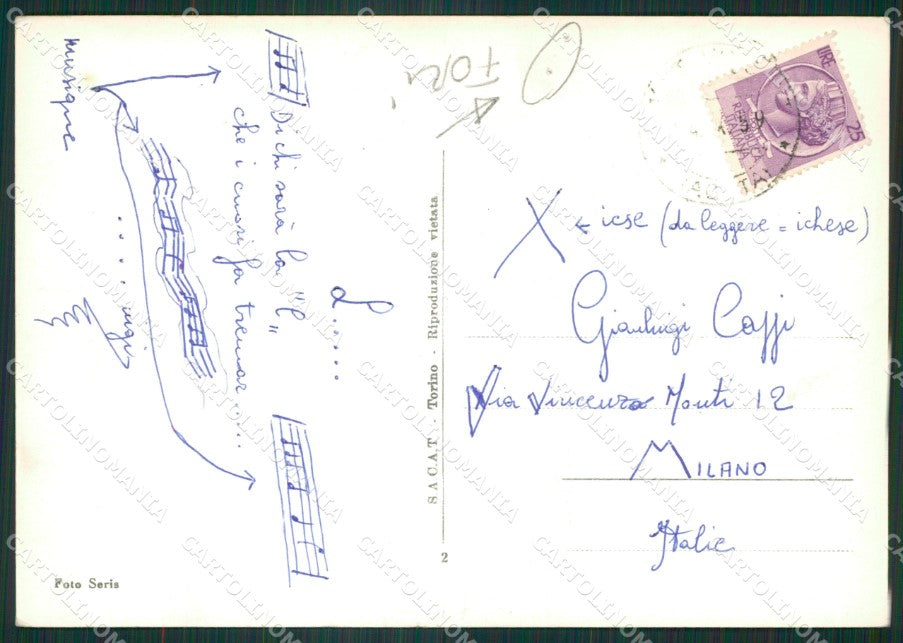 musique
Di chi sarà la "L"
che i cuori fa tremar ...
L.....
.... uigi
X ← icse (da leggere = ichese)
Gianluigi
Via Vincenzo Monti 12
MILANO
Italie
LIRE 25
REPVBBLICA ITALIANA
S A C A T - Torino - Riproduzione vietata
2
Foto Seris
CARTOLINOMANIA